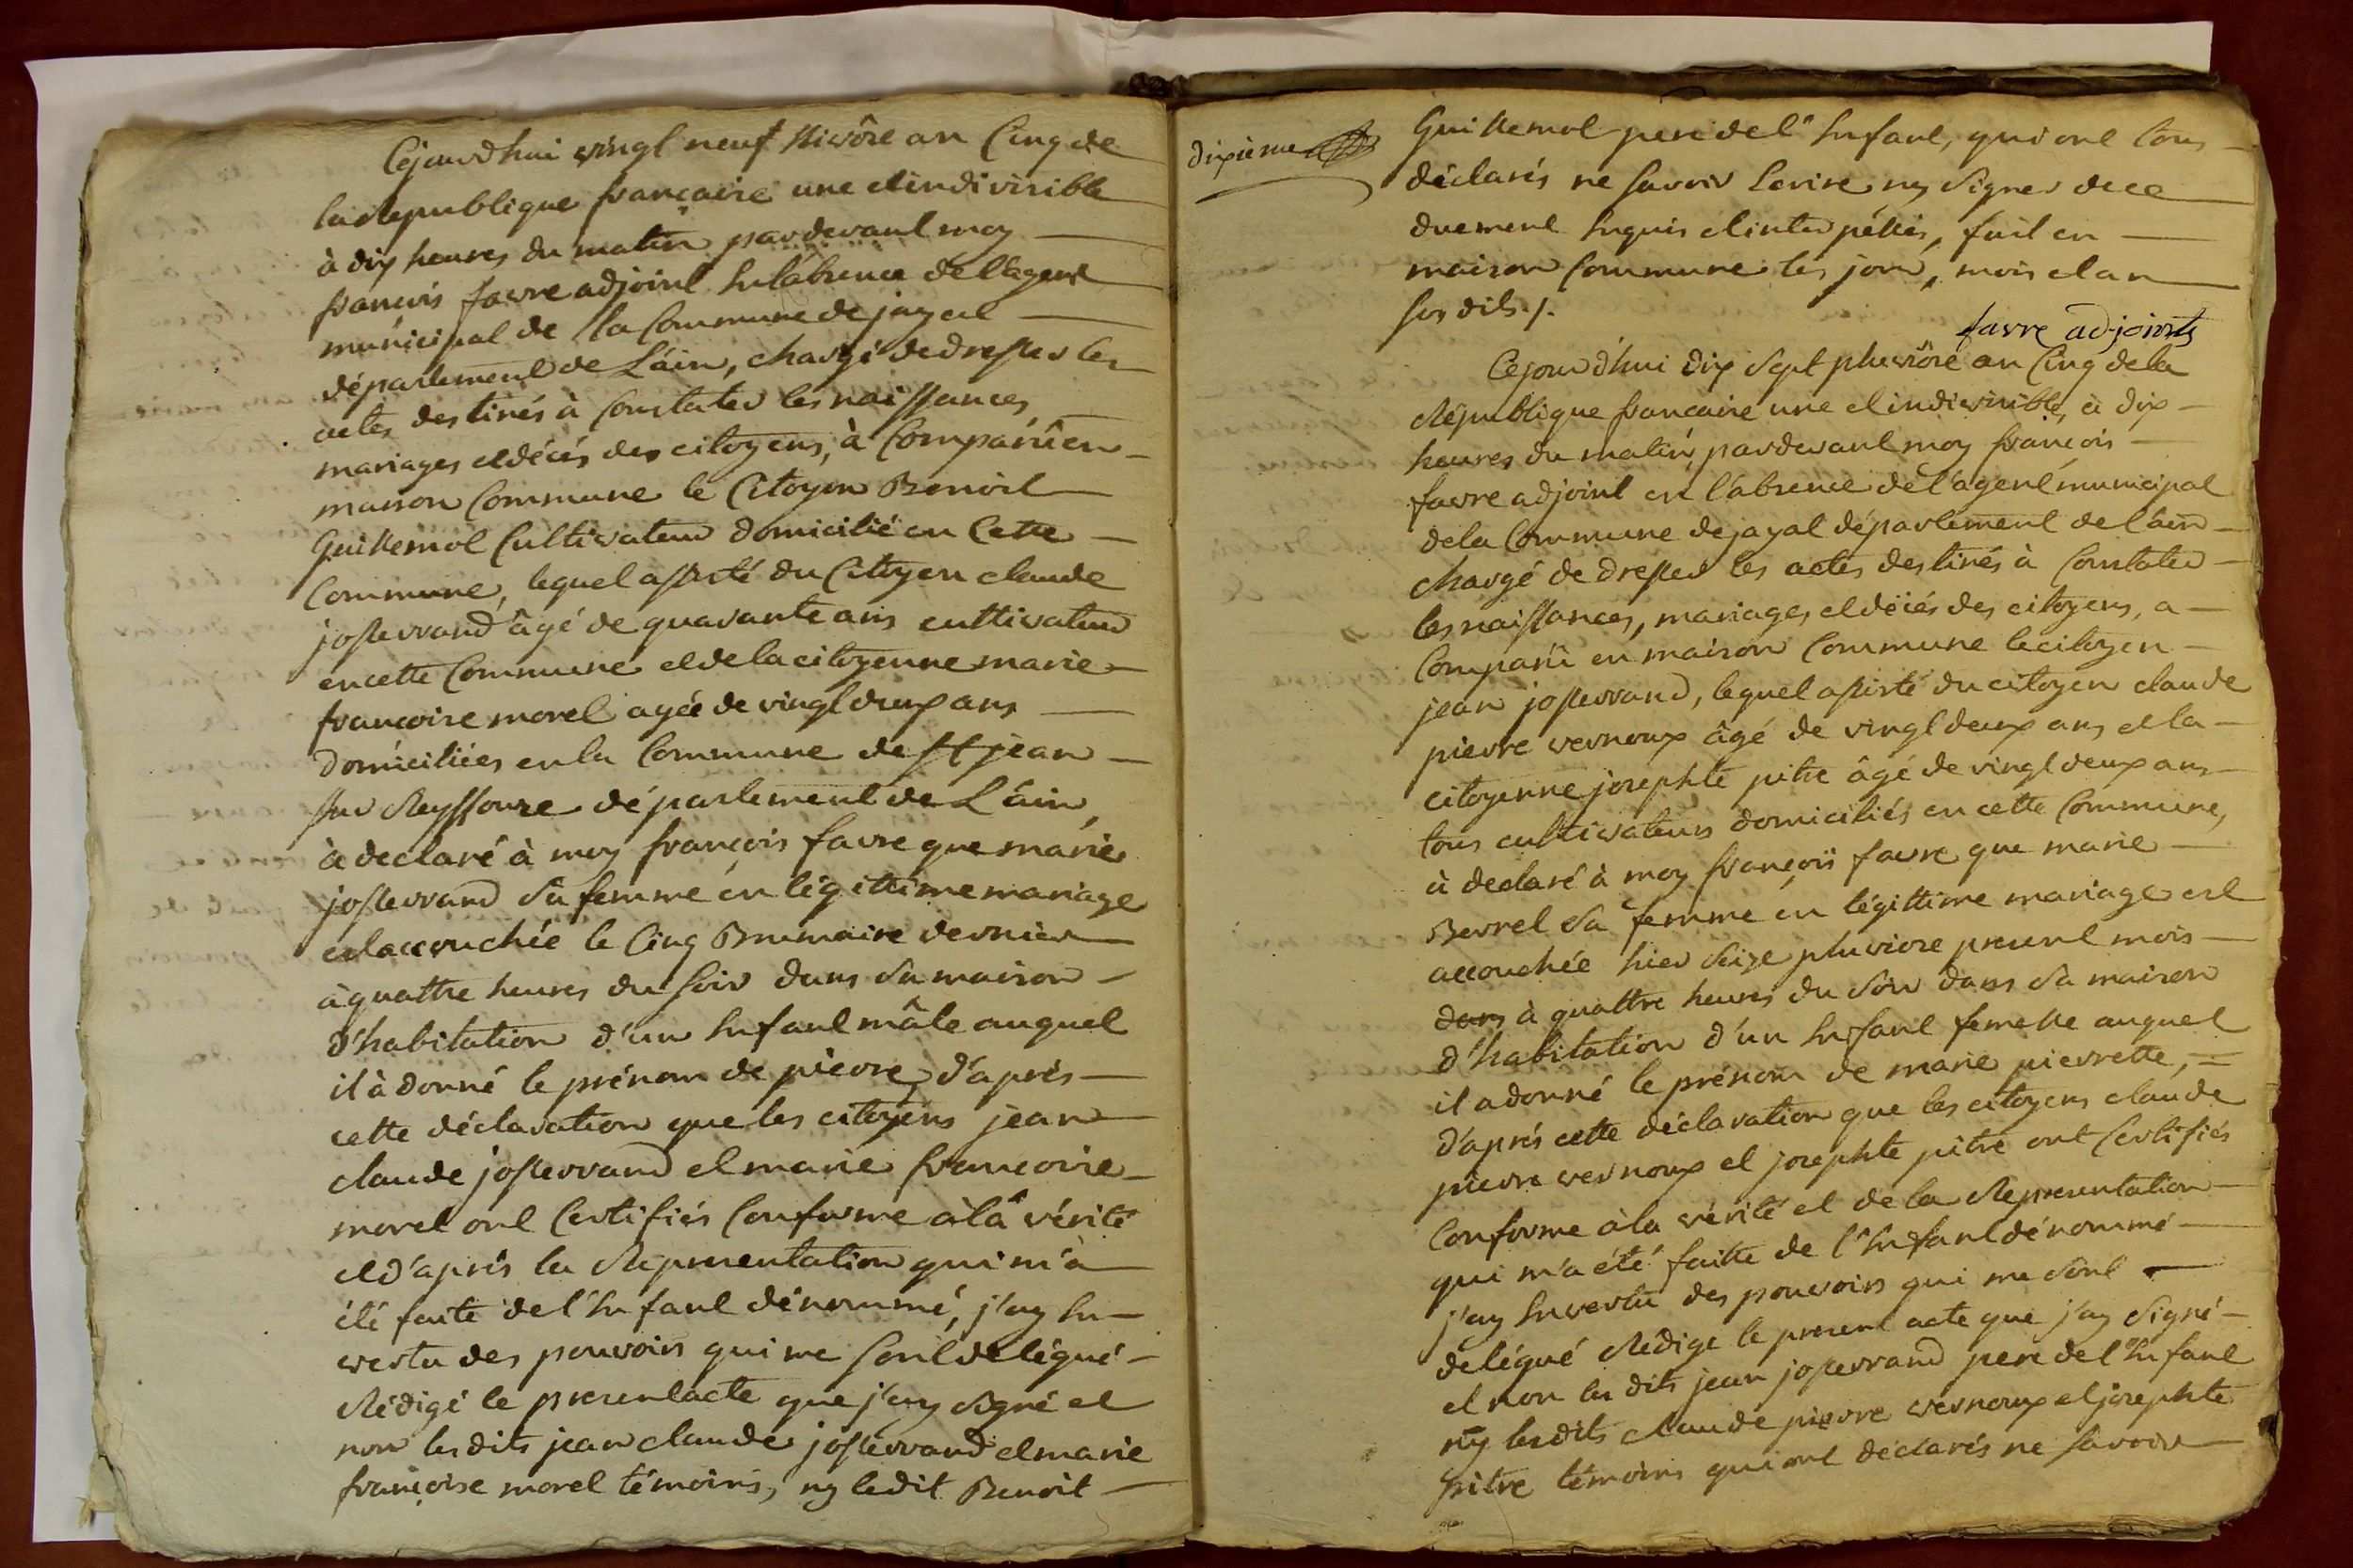 Cejourd'hui vingt neuf Nivôse an Cinq de
la Republique française une et indivisible
à dix heures du matin pardevant moy
françois favre adjoint En l'absence de l'agent
municipal de la Commune de jayat
département de L'ain, chargé de dresser les
actes destinés à Constater les naissances
mariages et décés des citoyens, à Comparû en
maison Commune le Citoyen Benoit
Guillemot Cultivateur domicilié en Cette
Commune, lequel assisté du Citoyen claude
josserrand âgé de quarante ans cultivateur
en cette Commune et de la citoyenne marie
françoise morel agée de vingt deux ans
domiciliées en la Commune de st jean
sur Reyssouze département de L'ain,
à declaré à moy françois favre que marie
josserrand sa femme en légittime mariage
est accouchée le Cinq Brumaire dernier
à quattre heures du soir dans sa maison
d'habitation d'un Enfant mâle auquel
il à donné le prénom de pierre, d'aprés
cette déclaration que les citoyens jean
claude josserrand et marie françoise
morel ont Certifiés Conforme à la vérité
et d'aprés la Representation qui m'à
été faite de l'Enfant dénommé, j'ay En
vertu des pouvoirs qui me sont delégué
Rédigé le present acte que j'ay signé et
non lesdits jean claude josserrand et marie
françoise morel témoins, ny ledit Benoit
dixieme
Guillemot pere de l'Enfant, qui ont tous
déclarés ne savoir Ecrire ny signer de ce
duement Enquis et interpéllés, fait en
maison Commune les jour, mois et an
sus dits ./.
favre adjoint
Cejourd'hui dix sept pluviôse an Cinq de la
République francaise une et indivisible, à dix
heures du matin, pardevant moy françois
favre adjoint en l'absence de l'agent municipal
de la Commune de jayat département de l'ain
chargé de dresser les actes destinés à Constater
les naissances, mariages, et décés des citoyens, a
Comparû en maison Commune le citoyen
jean josserrand, lequel assisté du citoyen claude
pierre vernoux âgé de vingt deux ans et la
citoyenne josephte pitre âgé de vingt deux ans
tous cultivateurs domiciliés en cette Commune,
à declaré à moy françois favre que marie
Berrel sa femme en légittime mariage est
accouchée hier seize pluviose present mois
dans à quattre heures du soir dans sa maison
d'habitation d'un Enfant femelle auquel
il a donné le prénom de marie pierrette, =
d'aprés cette déclaration que les citoyens claude
pierre vernoux et josephte pitre ont Certifiés
Conforme à la vérité et de la Representation
qui m'a été faitte de l'Enfant dénommé
j'ay En vertu des pouvoirs qui me sont
delégué Rédige le present acte que j'ay signé
et non les dits jean josserrand pere de l'Enfant
ny lesdits claude pierre vernoux et josephte
pitre témoins qui ont déclarés ne savoir